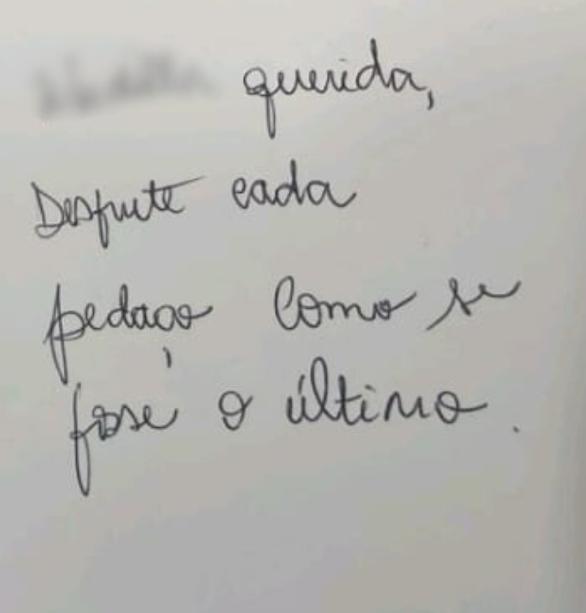 querida,
Desfrute cada
pedaço como se
fosse o último.